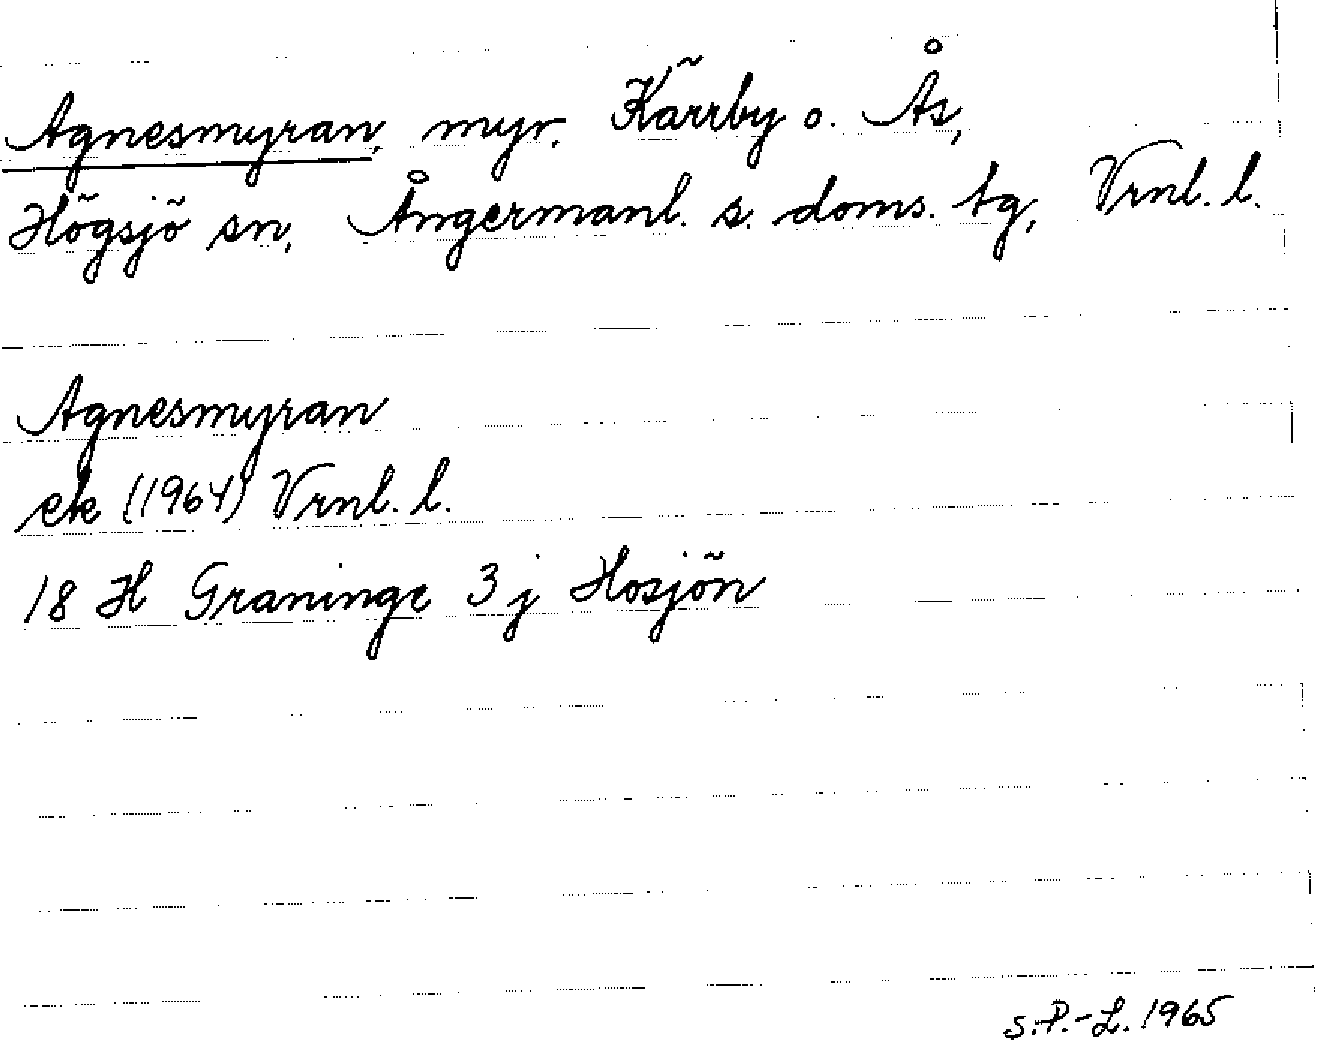 Agnesmyran, myr, Kärrby o. Ås,
Högsjö sn, Ångermanl. s. doms. tg, Vrnl. l.
Agnesmyran
ek (1964) Vrnl. l.
18 H Graninge 3 j Hosjön
S. P.-L. 1965